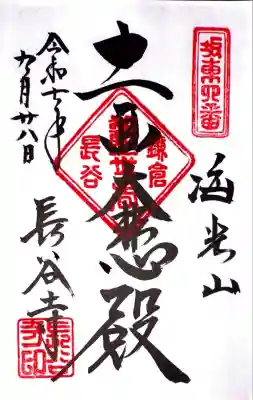 坂東四番
海光山
十一面大悲殿
鎌倉
長谷
令和七年
九月廿八日
長谷寺